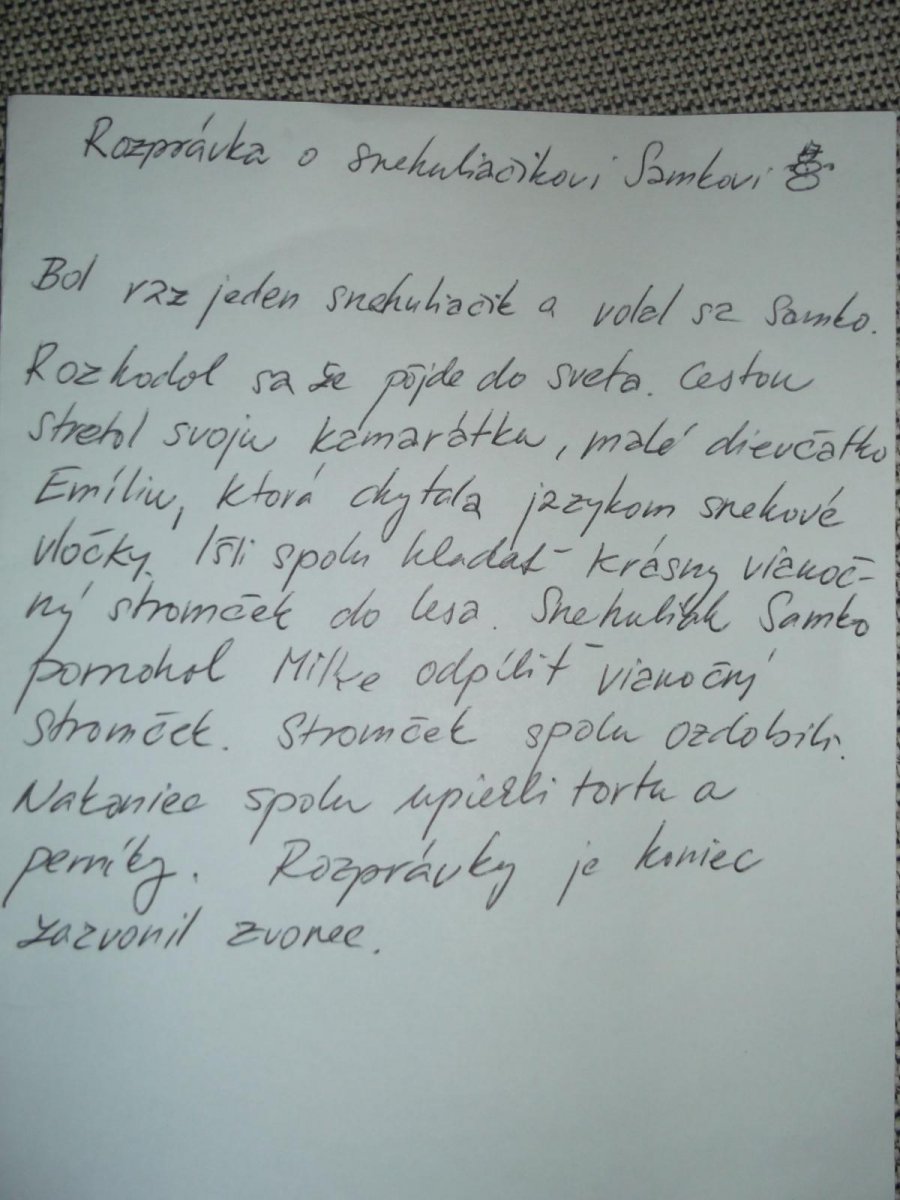 Rozprávka o snehuliačikovi Samkovi
Bol raz jeden snehuliačik a volal sa Samko.
Rozhodol sa že pôjde do sveta. Cestou
stretol svoju kamarátku, malé dievčatko
Emíliu, ktorá chytala jazykom snehové
vločky. Išli spolu hladať krásny vianoč-
ný stromček do lesa. Snehuliak Samko
pomohol Milke odpíliť vianočný
stromček. Stromček spolu ozdobili.
Nakoniec spolu upiekli tortu a
perníky. Rozprávky je koniec
zazvonil zvonec.